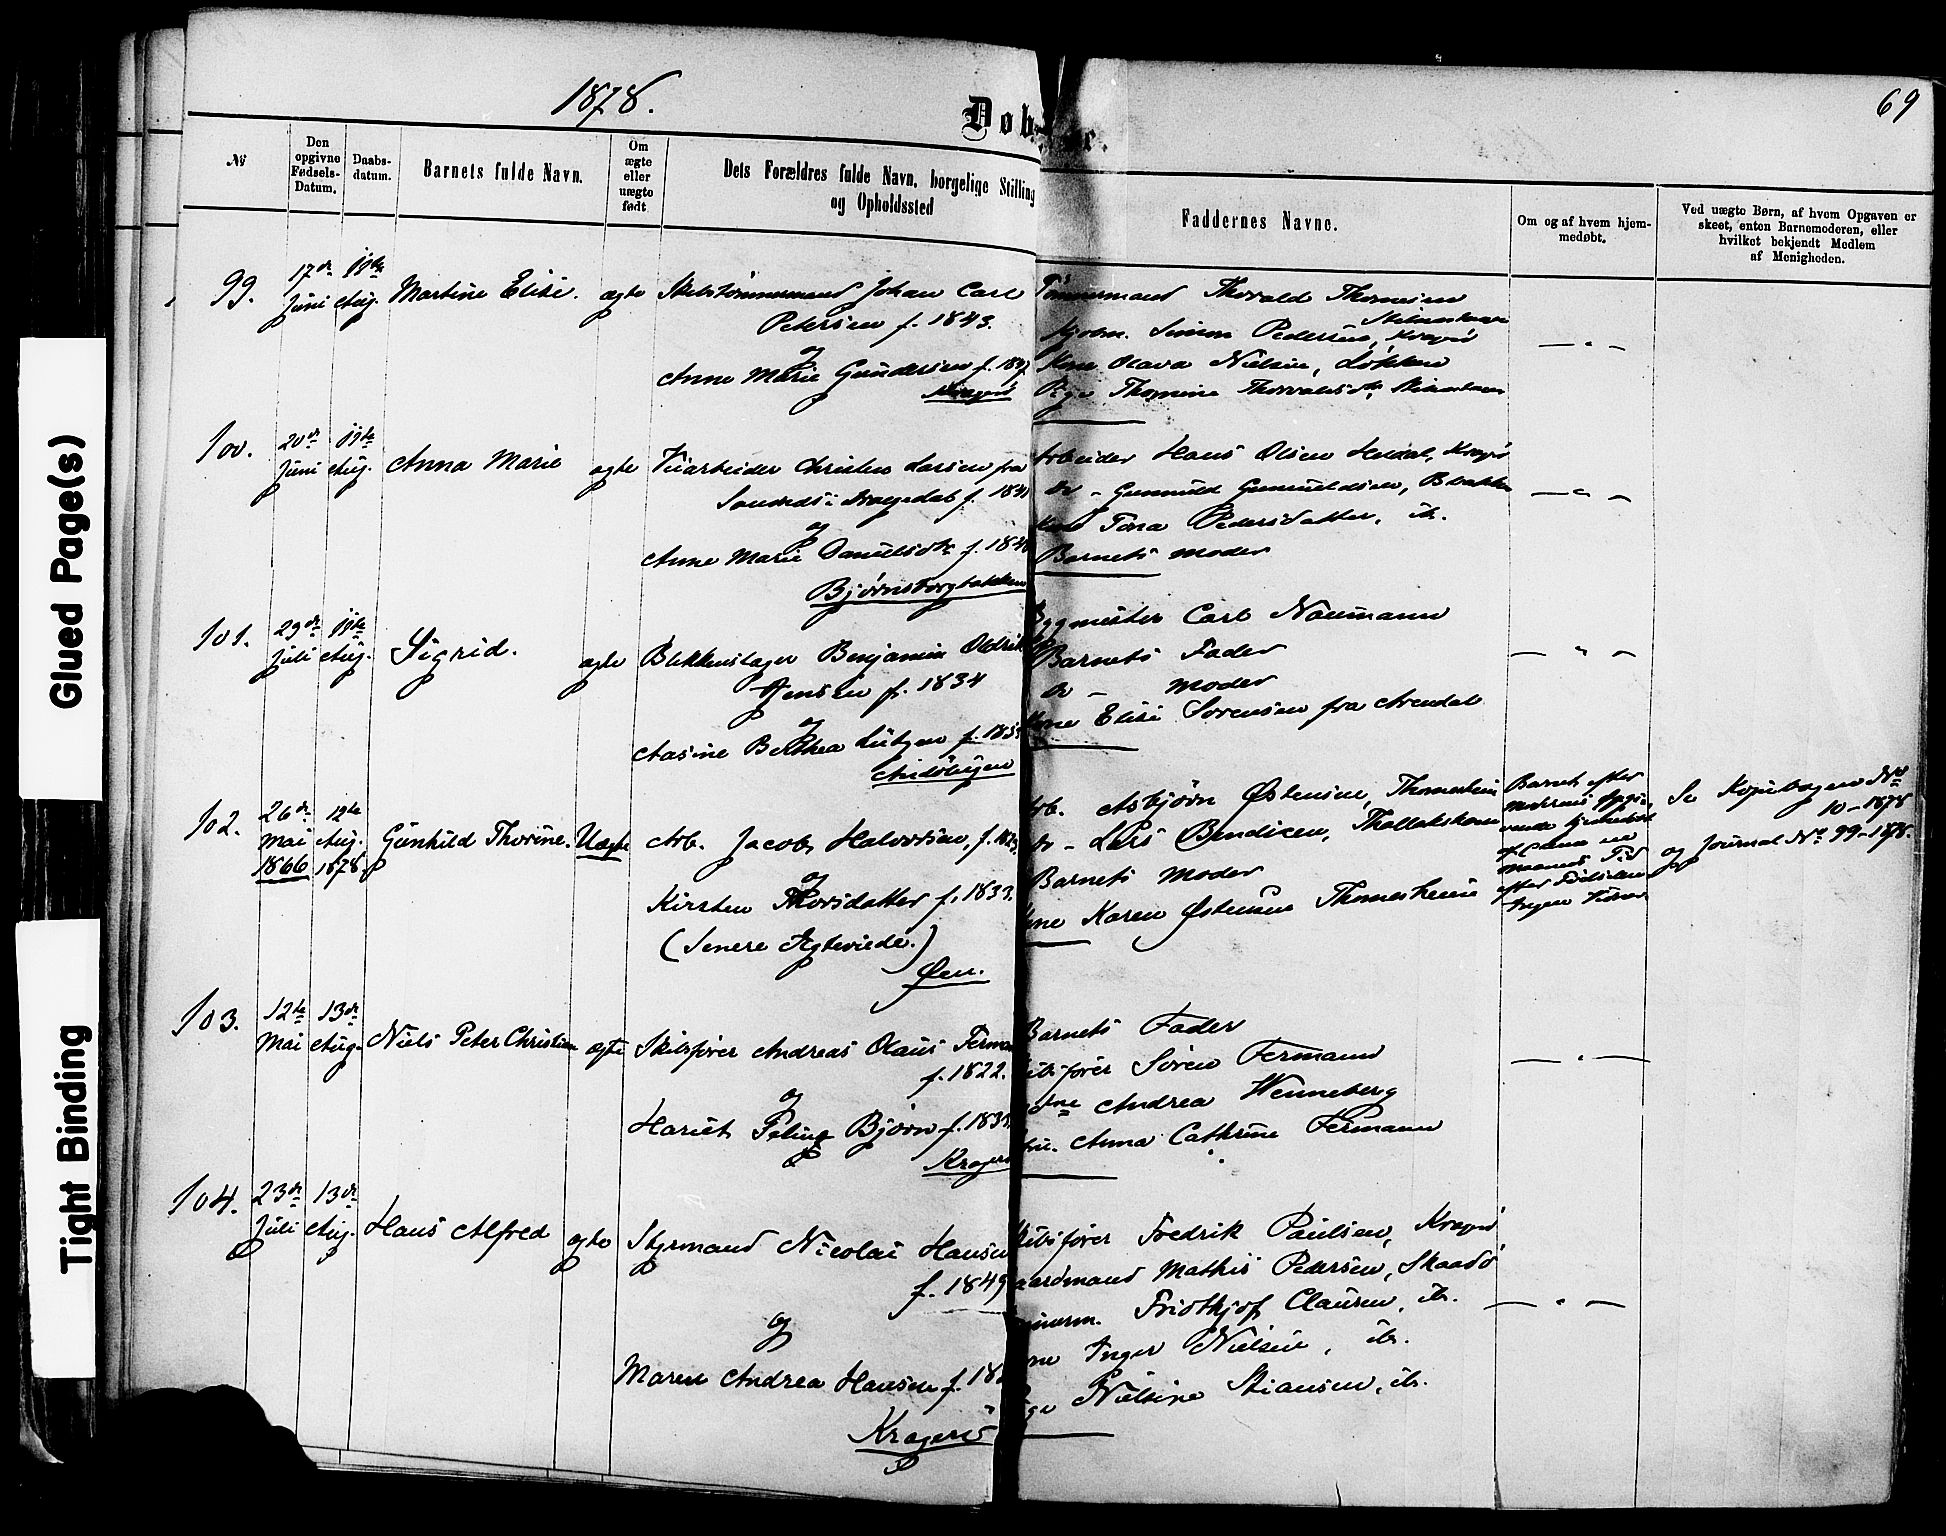 1878.
69
Døb
e.
№
Den opgivne Fødsels-Datum.
Daabs-datum.
Barnets fulde Navn.
Om ægte eller uægte født
Dets Forældres fulde Navn, borgelige Stilling
og Opholdssted
Faddernes Navne.
Om og af hvem hjem-
medøbt.
Ved uægte Børn, af hvem Opgaven er
skeet, enten Barnemoderen, eller
hvilket bekjendt Medlem
af Menigheden.
99.
17de Juni
11te Aug.
Martine Elise.
ægte
Skibstømmermand Johan Carl
Petersen f. 1843.
og
Anne Marie Gundersen f. 1847
Kragerø
Tømmermand Thorvald Thomesen
Simon Pedersen, Kragerø
Kone Olava Nielsen, Løkken
Pige Thomine Thorvaldsdtr,
— " —
100.
20de Juni
11te Aug.
Anna Marie
ægte
Christen Larsen fra
i Drangedal f. 184
og
Anne Marie Danielsdtr f. 184
Bjørnsborgbakken
Arbeider Hans Olsen Kragerø
Do - Gunnuld Gunnuldsen,
Kone Tona Pedersdatter, ib.
Barnets Moder
— " —
101.
29de Juli
11te Aug.
Sigrid.
ægte
Blikkenslager Benjamin Oldrik
Jensen f. 1834
og
Aasine Berthea Lütgen f. 183
Bygmester Carl Naumann
Barnets Fader
Do - Moder
Kone Elise Sørensen fra Arendal
— " —
102.
26de Mai 1866
12te Aug. 1878
Gunhild Thorine.
Uægte
Arb. Jacob Halvorsen, f. 182
og
Kirsten Thorsdatter f. 1833.
(Senere Ægteviede.)
Øen.
Arb. Asbjørn Østensen,
Do - Lars Bendixen,
Barnets Moder
Kone Karen Østensen Thomesheien
Barnet efter
Moderens
en
Maaneds Tid
efter Fødselen
Ingen
Se Kopibogen No
10-1878
og Journal No 99-1878.
103.
12te Mai
13de Aug.
Niels Peter Christian
ægte
Skibsfører Andreas Olaus Ferman
f. 1822.
og
Hariet Bjørn f. 183
Kragerø
Barnets Fader
Skibsfører Søren Fermann
Andrea Wenneberg
Anna Cathrine Fermann
— " —
104.
23de Juli
13de Aug.
Hans Alfred
ægte
Styrmand Nicolai Hansen
f. 1849
og
Maren Andrea Hansen f. 18
Kragerø
Skibsfører Fredrik Paulsen, Kragerø
Gaardmand Mathis Pedersen, Skaadø
Fridthjof Clausen, ib.
Kone Inger Nielsen, ib.
Pige Nielsine Stiansen, ib.
— " —
Glued Page(s)
Tight Binding